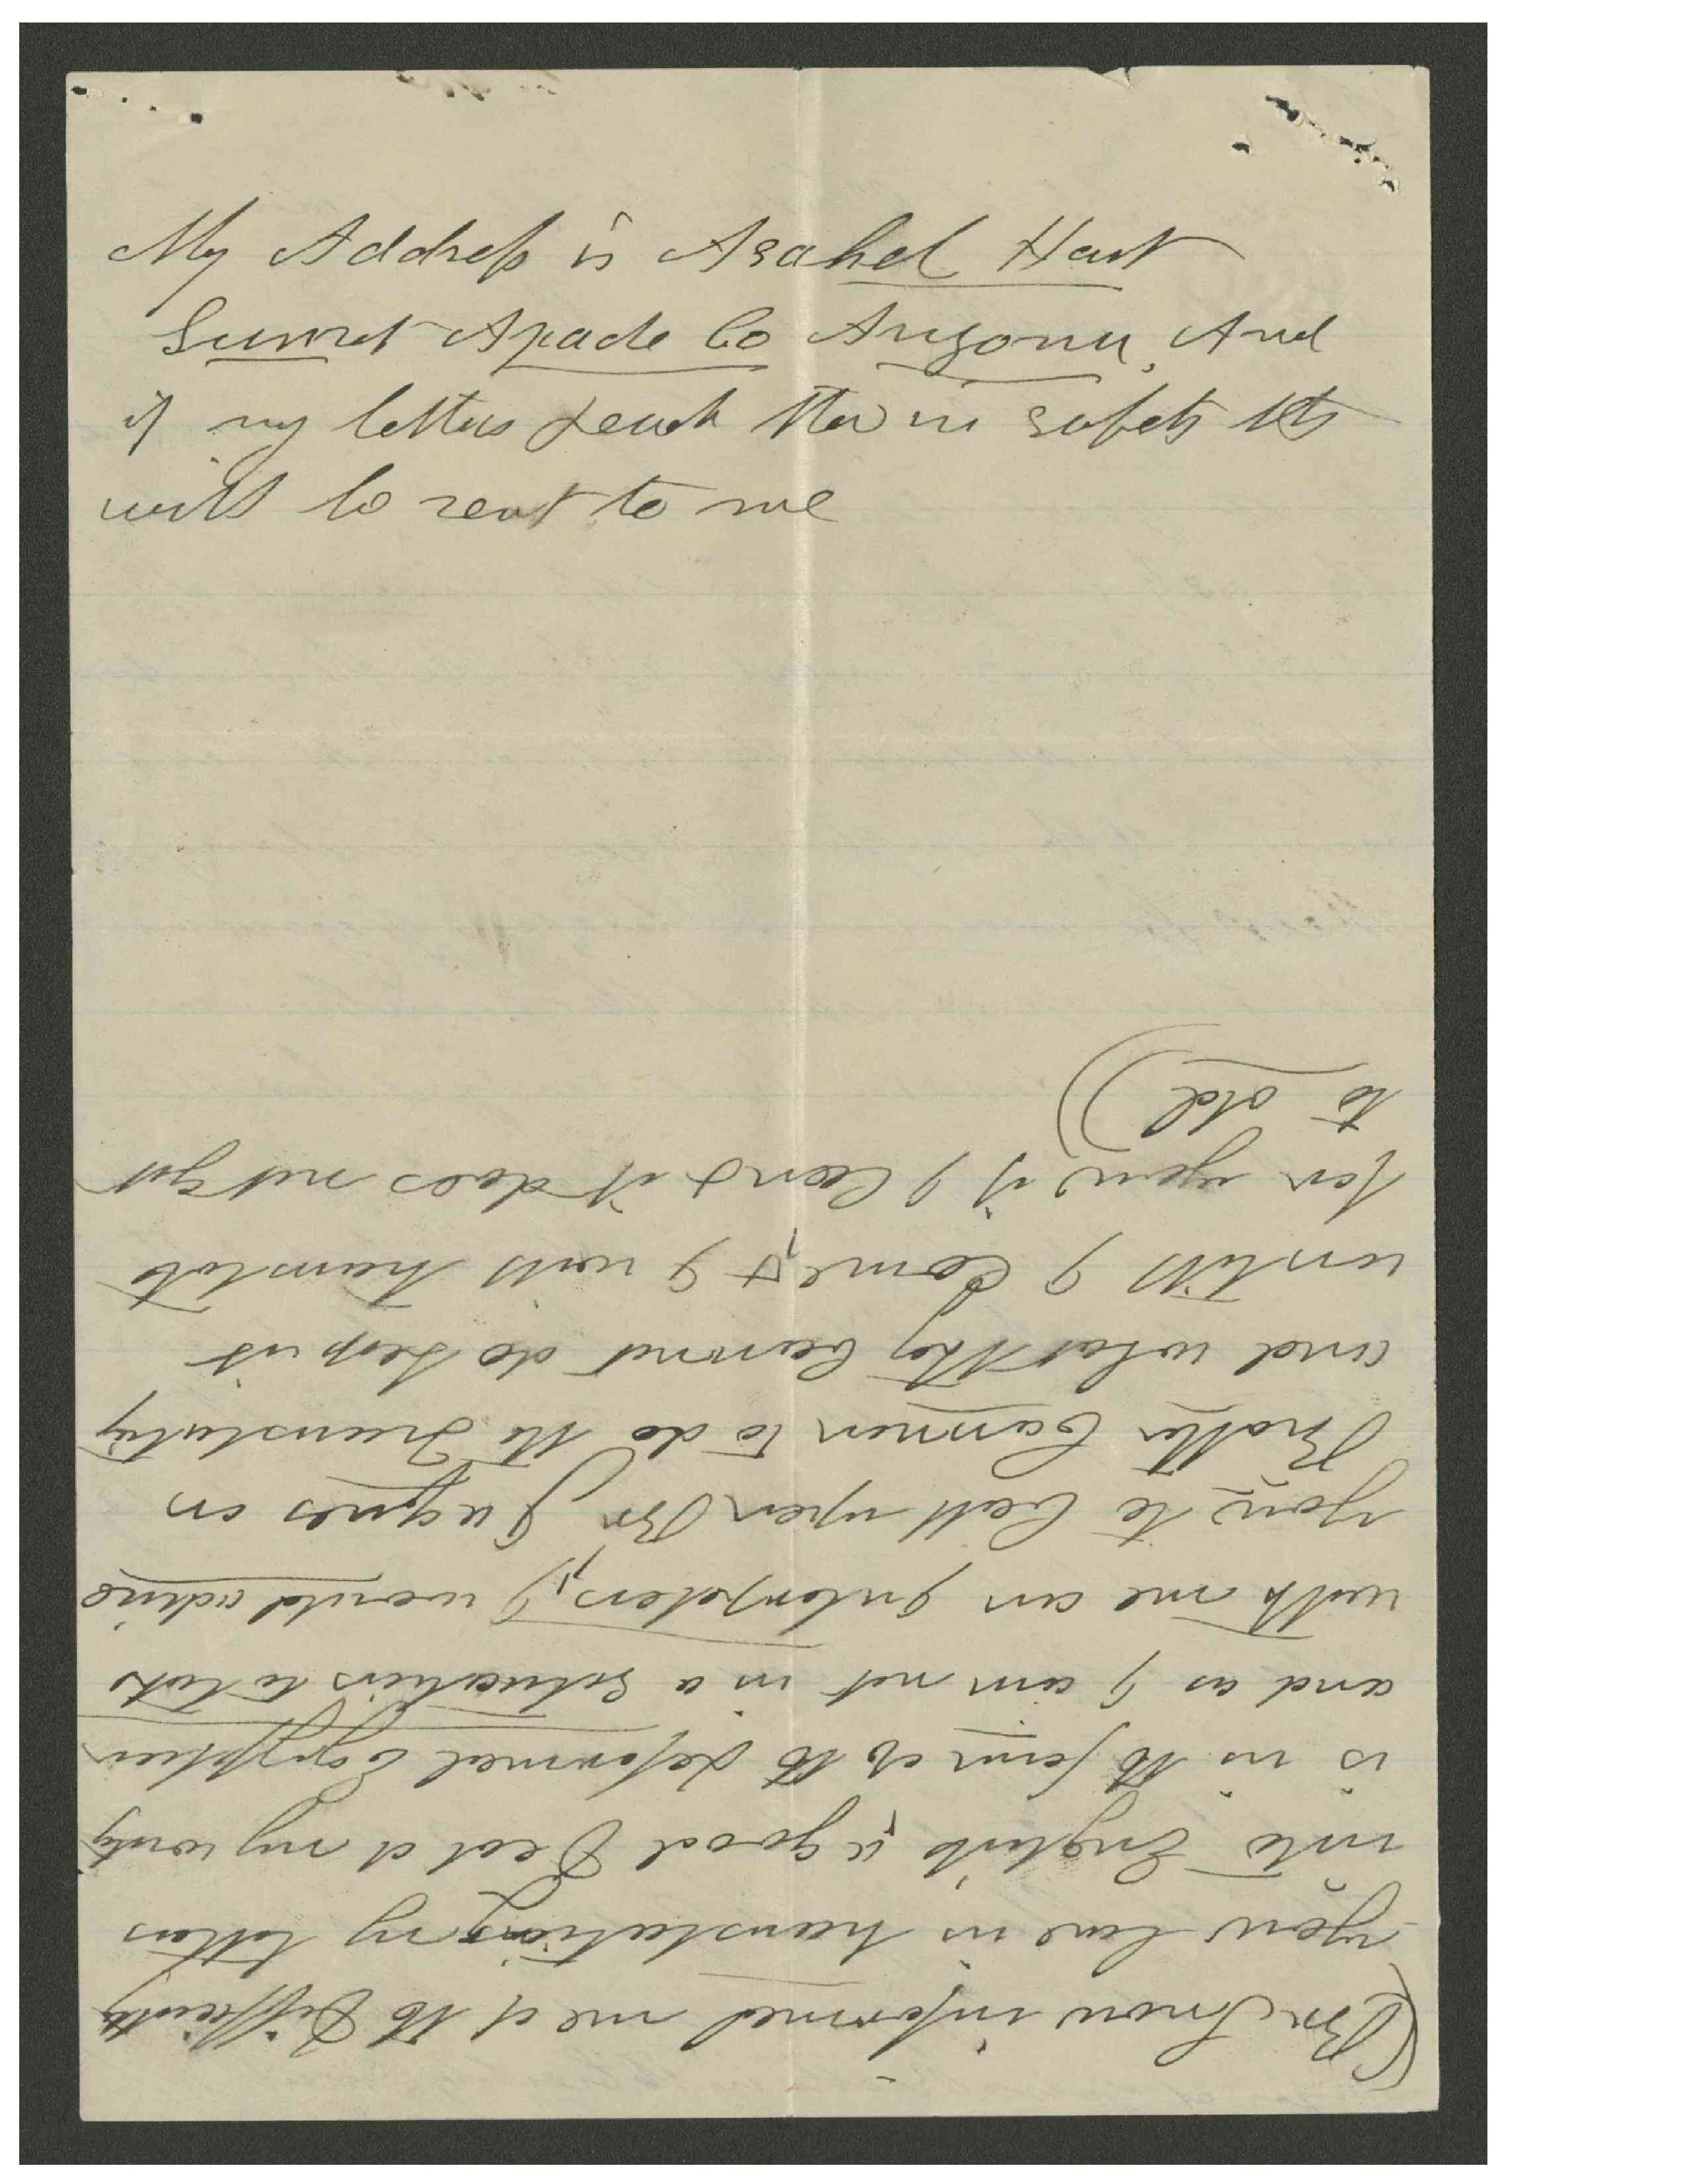 My Address is Asahel Hart
Sunset Apache Co Arizona, And
if my letters reach thee in safety
will be sent to me
(Br Snow informed me of the Difficulty
you have in translating my letters
into English, a good Deal of my writing
is in the form of the reformed Egyptian
and as I am not in a situation to take
with me an Interpreter, I would advise
you to Call upon Br Jaques or
Brother Cannon to do the Translating
and what they cannot do keep it
untill I Come, & I will translate
for you if I Can & it does not get
to old)